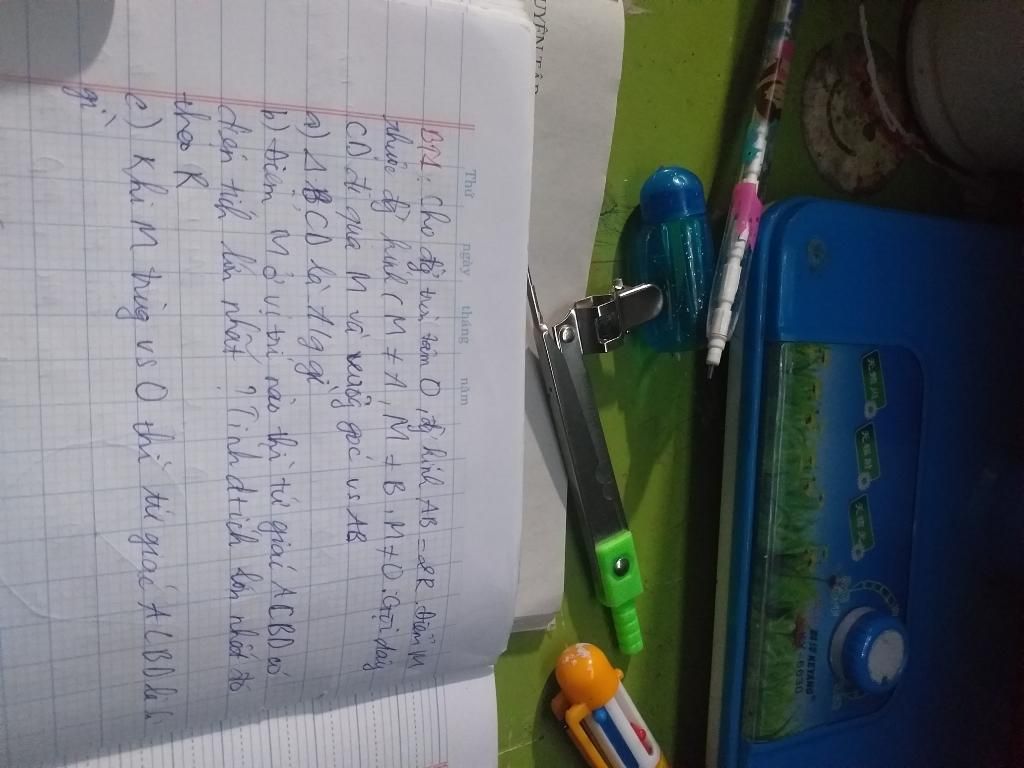 UYỆN TẬP
Thứ ngày tháng năm
Bà1: Cho đg tròn tâm O, đg kính AB = 2R. Điểm M
thuộc đg kính (M ≠ A, M ≠ B, M ≠ O. Gọi dây
CD đi qua M và vuông góc vs AB
a) Δ BCD là Δ gì
b) Điểm M ở vị trí nào thì tứ giác ACBD có
diện tích lớn nhất? Tính dtich lớn nhất đó
theo R
c) Khi M trùng vs O thì tứ giác ACBD là
gì
KEYANG